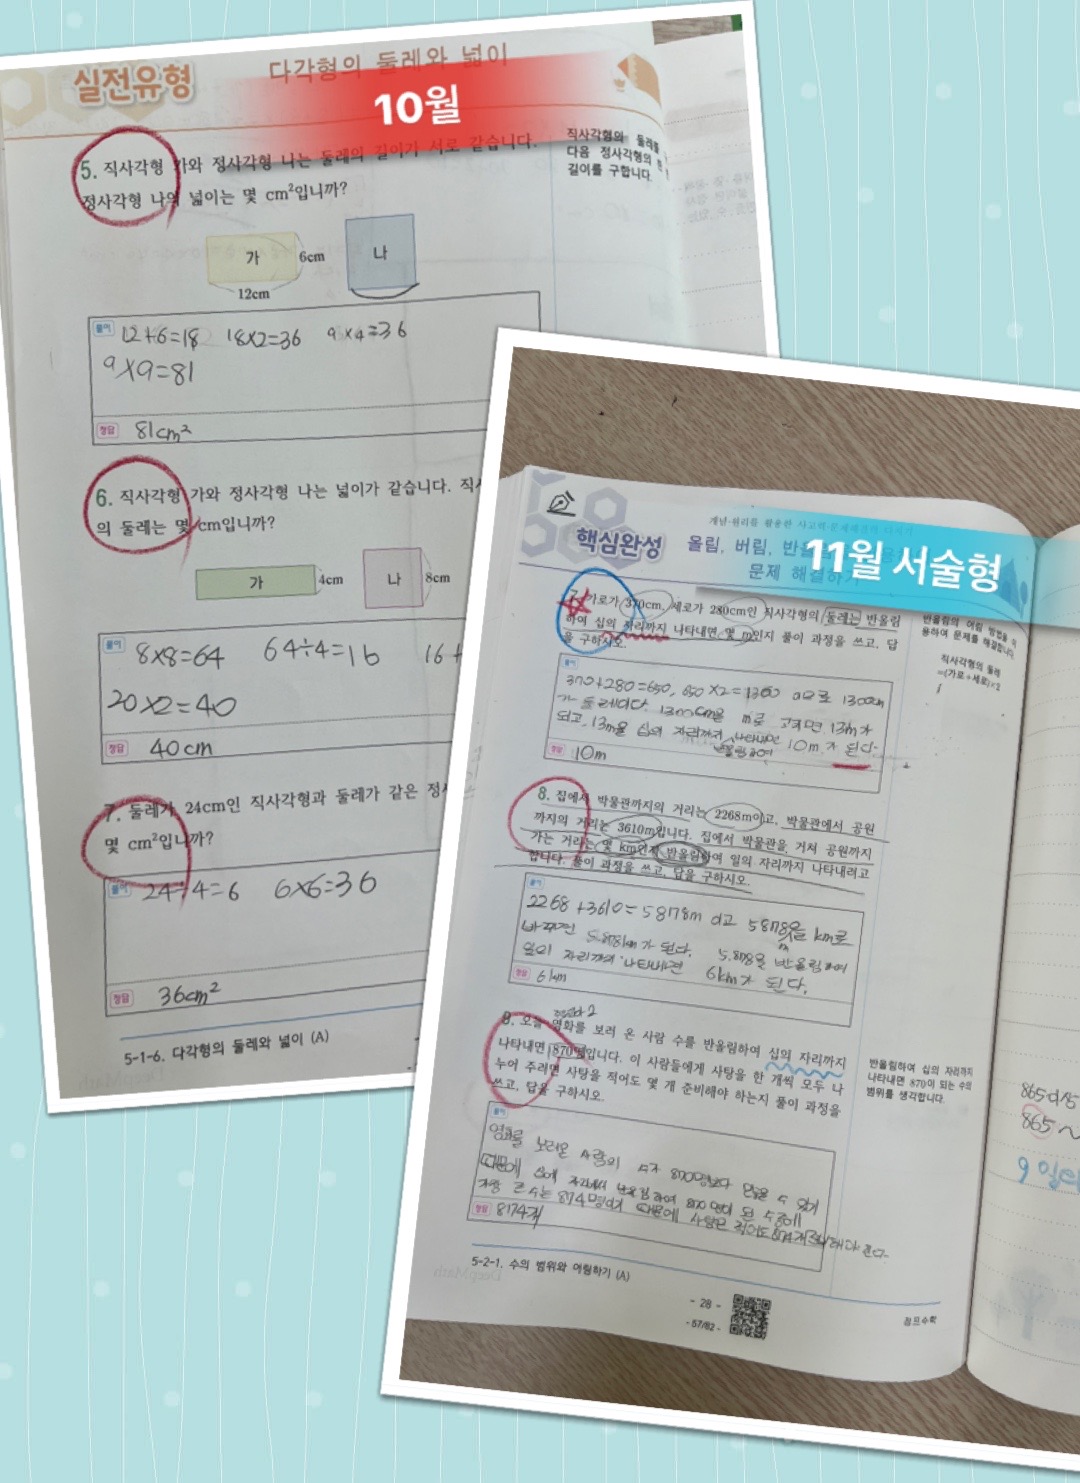 실전유형
다각형의 둘레와 넓이
10월
5. 직사각형 가와 정사각형 나는 둘레의 길이가 서로 같습니다.
정사각형 나의 넓이는 몇 cm²입니까?
직사각형의 둘레를
다음 정사각형의 한
길이를 구합니다.
가
6cm
12cm
나
풀이
12+6=18 18×2=36 9×4=36
9×9=81
정답 81cm²
6. 직사각형 가와 정사각형 나는 넓이가 같습니다. 직
의 둘레는 몇 cm입니까?
가
4cm
나
8cm
풀이 8×8=64 64÷4=16 16+
20×2=40
정답 40cm
7. 둘레가 24cm인 직사각형과 둘레가 같은 정
몇 cm²입니까?
풀이 24÷4=6 6×6=36
정답 36cm²
5-1-6. 다각형의 둘레와 넓이 (A)
개념·원리를 활용한
핵심완성
올림, 버림, 반올림
문제 해결하기
11월 서술형
7. 가로가 370cm, 세로가 280cm인 직사각형의 둘레는 반올림
하여 십의 자리까지 나타내면 몇 m인지 풀이 과정을 쓰고, 답
을 구하시오.
반올림의 어림 방법을 이
용하여 문제를 해결합니다.
직사각형의 둘레
=(가로+세로)×2
풀이
370+280=650, 650×2=1300 이므로 1300cm
가 둘레이다. 1300cm를 m로 고치면 13m가
되고, 13m을 십의 자리까지 나타내면 10m가 된다.
반올림하여
정답 10m
8. 집에서 박물관까지의 거리는 2268m이고, 박물관에서 공원
까지의 거리는 3610m입니다. 집에서 박물관을 거쳐 공원까지
가는 거리는 몇 km인지 반올림하여 일의 자리까지 나타내려고
합니다. 풀이 과정을 쓰고, 답을 구하시오.
풀이
2268+3610=5878m이고 5878을 km로
m
바꾸면 5.878km가 된다. 5.878을 반올림하여
일의 자리까지 나타내면 6km가 된다.
정답 6km
9. 오늘 영화를 보러 온 사람 수를 반올림하여 십의 자리까지
나타내면 870명입니다. 이 사람들에게 사탕을 한 개씩 모두 나
누어 주려면 사탕을 적어도 몇 개 준비해야 하는지 풀이 과정을
쓰고, 답을 구하시오.
반올림하여 십의 자리까지
나타내면 870이 되는 수의
범위를 생각합니다.
풀이
영화를 보러온 사람의 수가 870명보다 많을 수 있기
때문에 십의 자리에서 반올림하여 870명이 된 수중에
가장 큰 수는 874명이기 때문에 사탕은 적어도 874개
정답 874개
5-2-1. 수의 범위와 어림하기 (A)
- 28 -
- 57/82 -
점프수학
865이상
865~
9